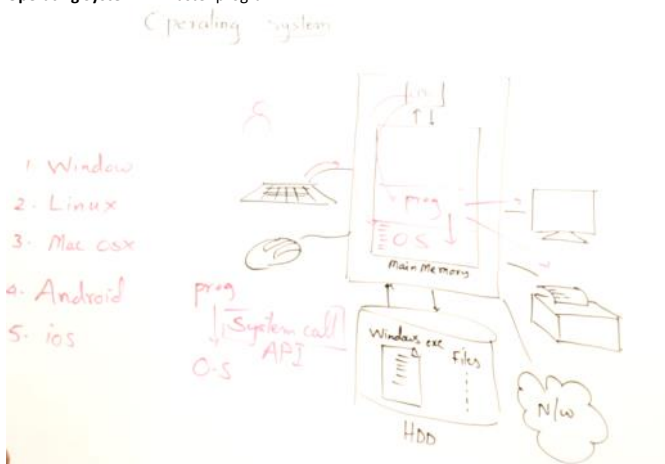 Operating System
1. Window
2. Linux
3. Mac osx
4. Android
5. ios
prog
System call
API
O-S
prog
OS
Main Memory
Windows exe
Files
HDD
N/w